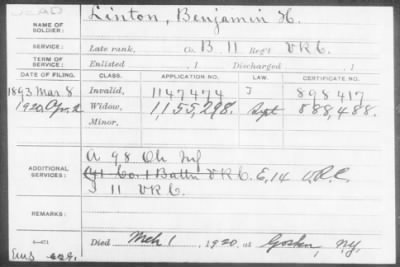 DEAD
NAME OF SOLDIER: Linton, Benjamin H.
SERVICE: Late rank, Co. B 11 Reg't V R C.
TERM OF SERVICE: Enlisted , 1 Discharged , 1
DATE OF FILING. CLASS. APPLICATION NO. LAW. CERTIFICATE NO.
1893 Mar. 8 Invalid, 1147474 J 898417
1920, Apr. 2 Widow, 1,155,298. Sept 888,488.
Minor,
ADDITIONAL SERVICES: A 98 Oh Inf
Co. 1 Battn V R C. E, 14 V.R.C.
11 V R C.
REMARKS:
Died Mch 1, 1920, at Goshen, N.Y.